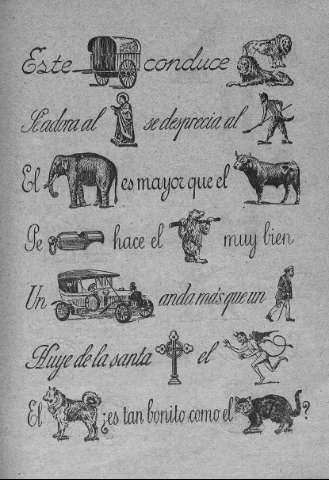 Este conduce
Se adora al se desprecia al
El es mayor que el
Pe hace el muy bien
Un anda más que un
Huye de la santa el
El ¿es tan bonito como el ?